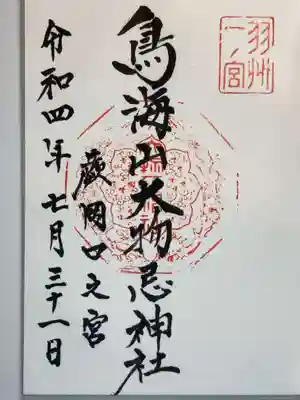 羽州
一ノ宮
鳥海山大物忌神社
蕨岡口之宮
令和四年七月三十一日